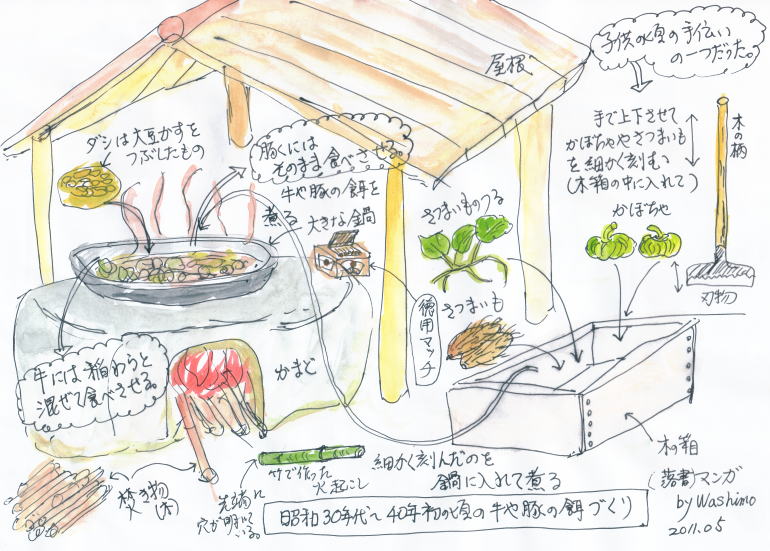 子供の頃の手伝い
の一つだった。
屋根
手で上下させて
かぼちゃやさつまいも
を細かく刻む
(木箱の中に入れて)
木の柄
かぼちゃ
刃物
ダシは大豆かすを
つぶしたもの
豚くには
そのまま食べさせる。
牛や豚の餌を
煮る
大きな鍋
さつまいものつる
さつまいも
徳用マッチ
牛には稲わらと
混ぜて食べさせる。
かまど
木の箱
竹で作った
火起こし
細かく刻んだのを
鍋に入れて煮る
焚き物
(木)
先端に
穴が明いて
いる。
昭和30年代~40年初の頃の牛や豚の餌づくり
(落書)マンガ
by Washimo
2011.05